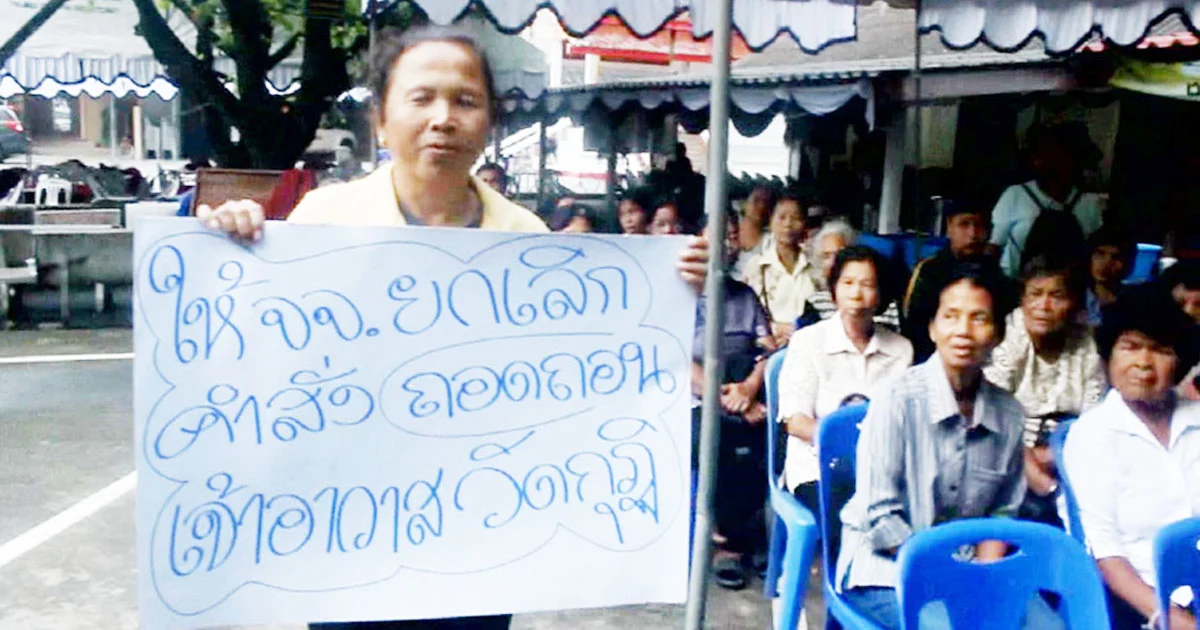 ให้ จจ. ยกเลิก
คำสั่ง ถอดถอน
เจ้าอาวาส วัดกุฏิ